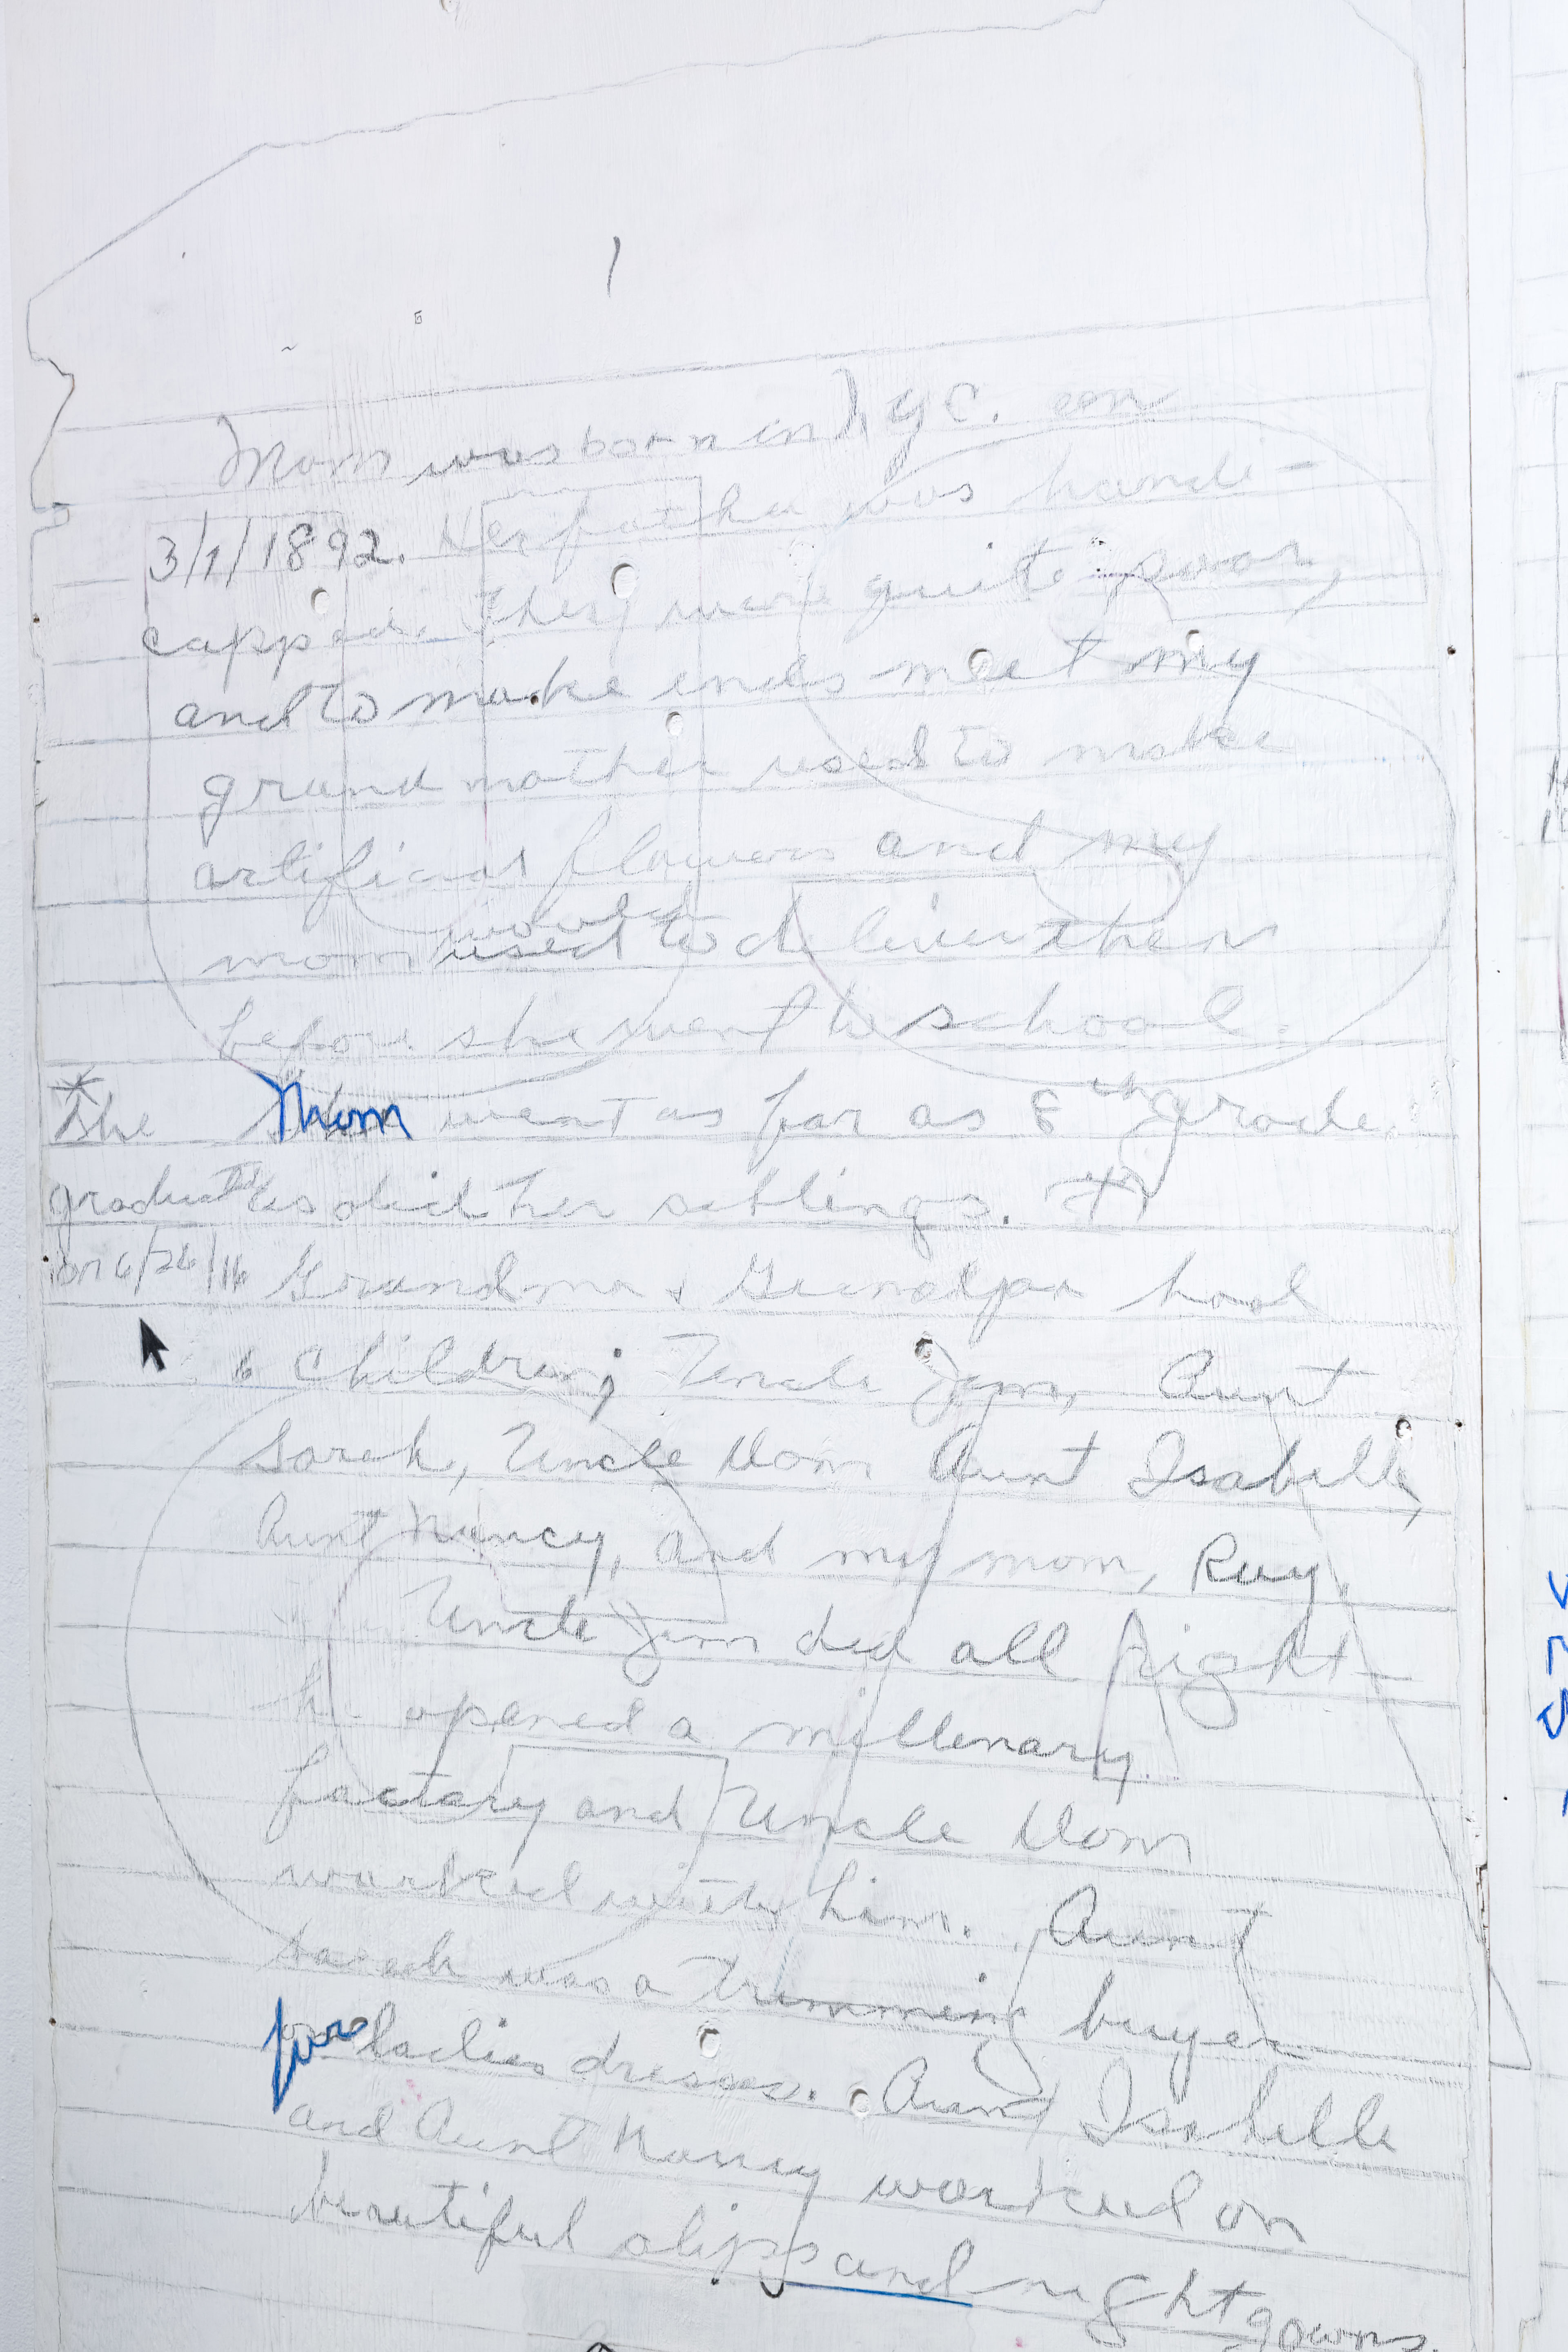 1
Mom was born in N y C. on
3/1/1892. Her father was handi-
capped. They were quite poor,
and to make ends meet my
grandmother used to make
artificial flowers and my
would
mom used to deliver them
before she went to school.
* She Mom went as far as 8th grade,
graduated as did her siblings.
on 6/26/ Grandma & Grandpa had
6 children; Uncle Jim, Aunt
Sarah, Uncle Dom Aunt Isabelle,
Aunt Nancy, and my mom, Ray.
Uncle Jim did all right -
he opened a millenary
factory and Uncle Dom
worked with him. Aunt
Sarah was a trimming buyer
for ladies dresses. Aunt Isabelle
and Aunt Nancy worked on
beautiful slips and nightgowns.